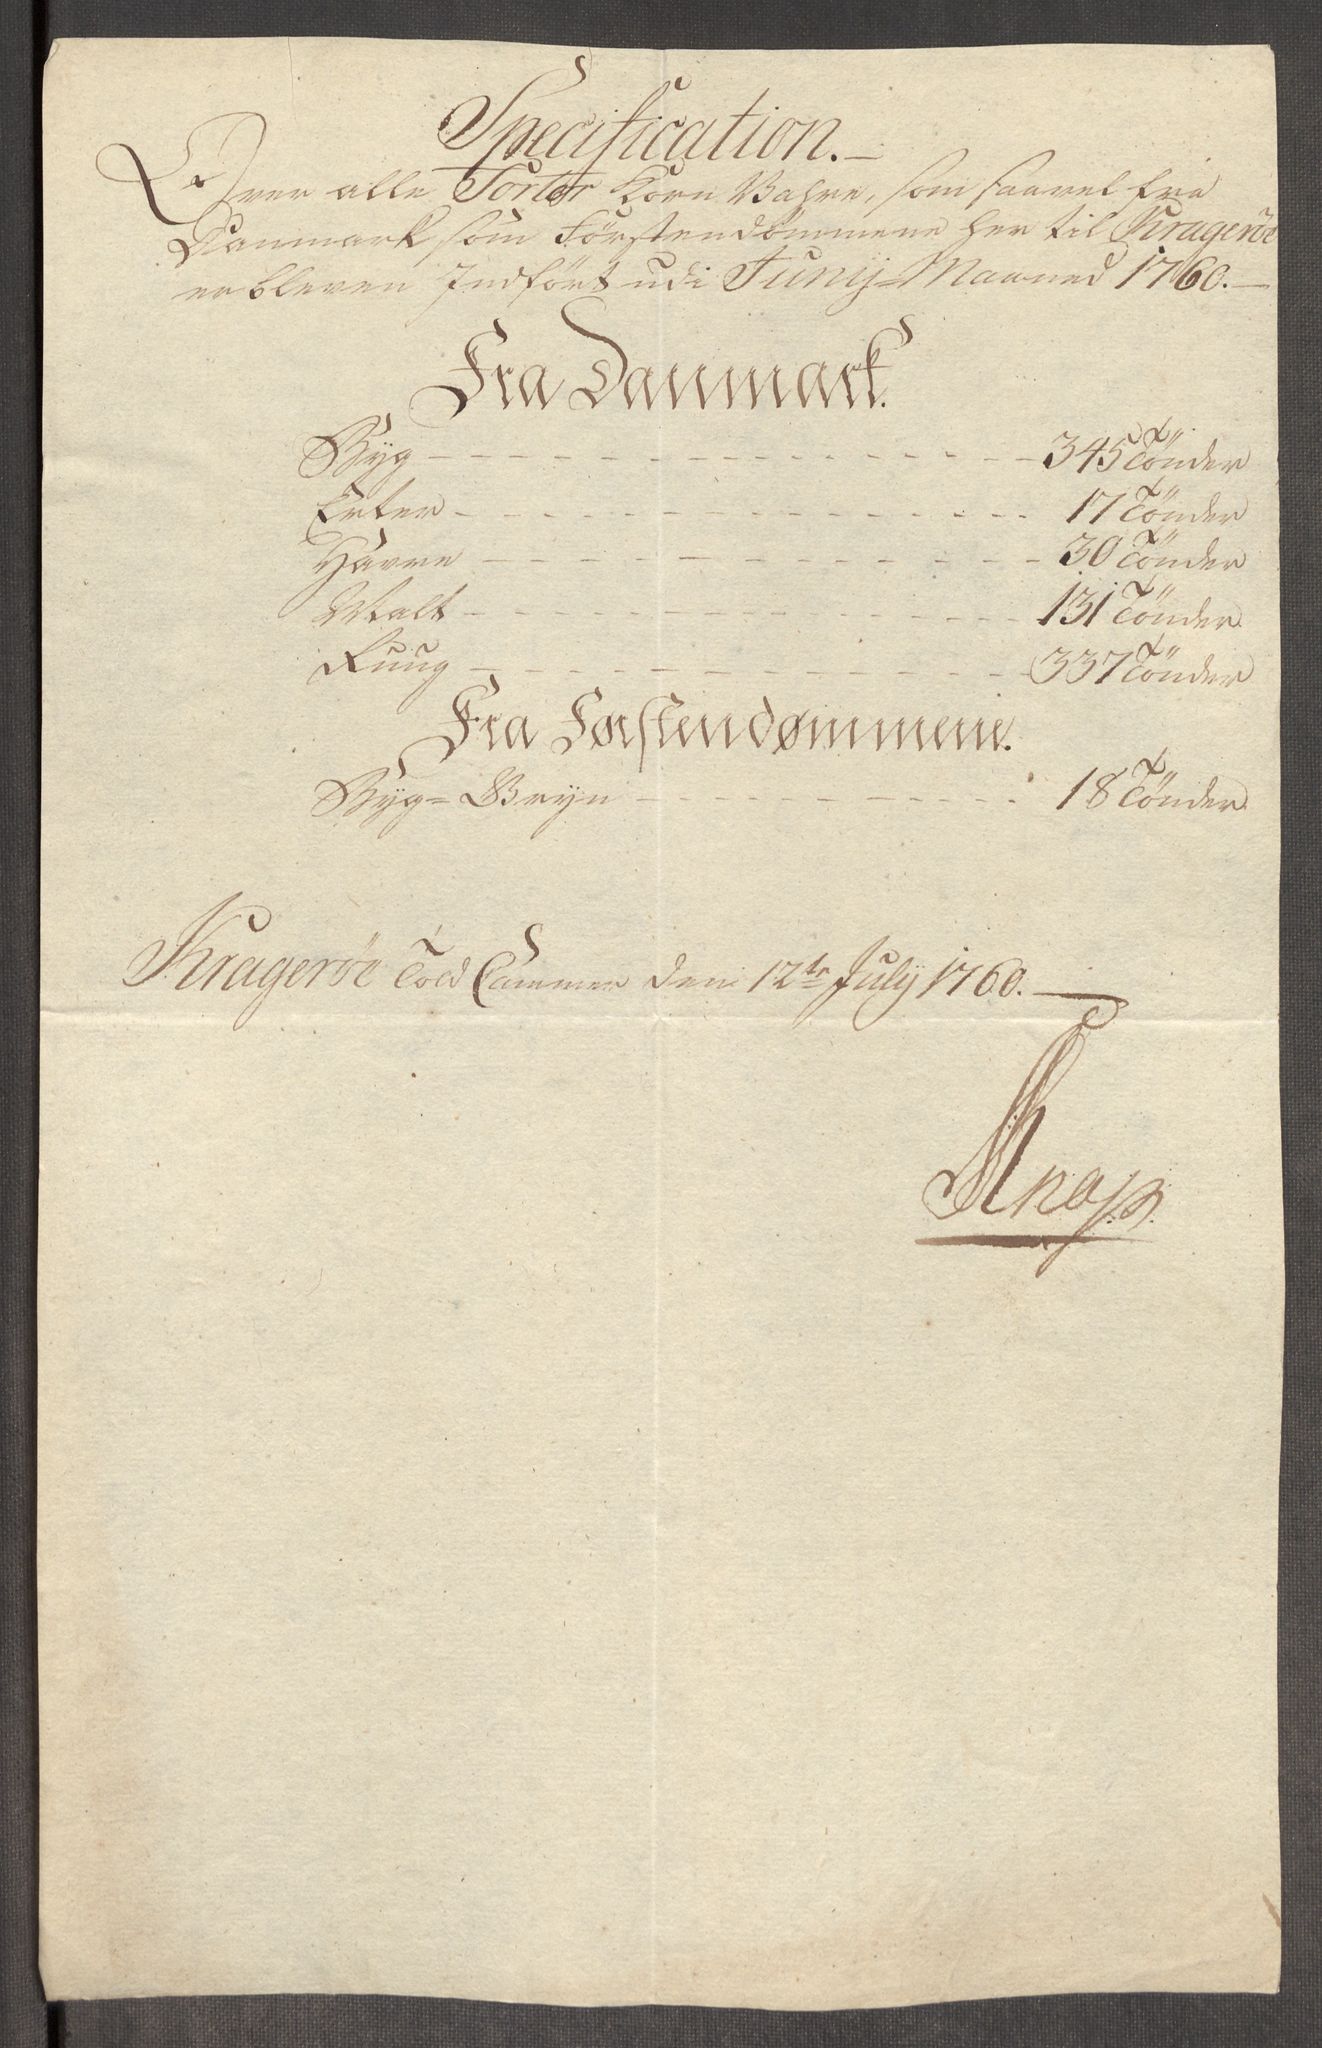 Specification.
Over alle Sorter Korn Vahre, som saavel fra
Danmark som Förstendömmene her til Krageröe
er bleven Indfört udi Junij Maaned 1760.
Fra Danmark.
Byg 345 Tönder
Erter 17 Tönder
Havre 30 Tönder
Malt 131 Tönder
Ruug 337 Tönder
Fra Førstendømmene.
Byg=Gryn 18 Tönder
Krageröe Told Cammer den 12te July 1760.